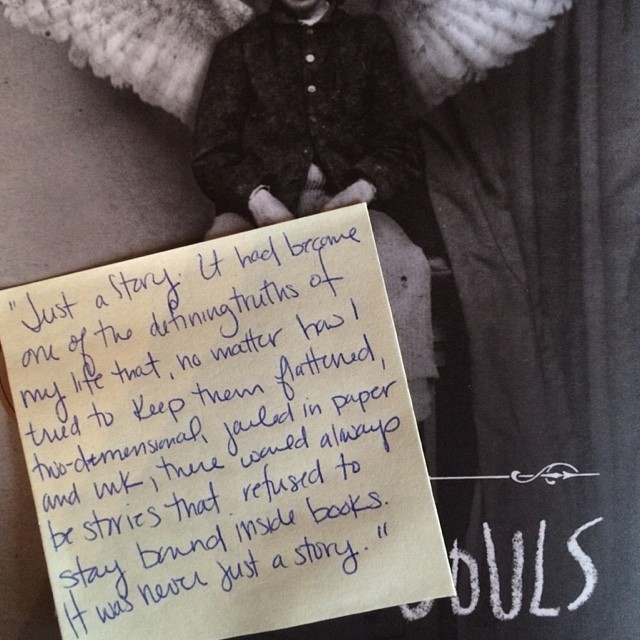 "Just a story. It had become
one of the defining truths of
my life that, no matter how I
tried to keep them flattened,
two-demensional, jailed in paper
and ink, there would always
be stories that refused to
stay bound inside books.
It was never just a story."
SOULS